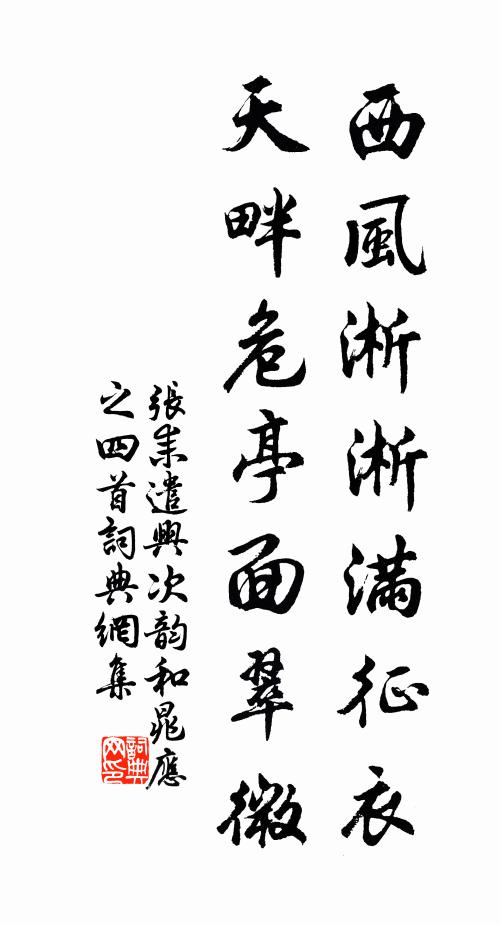 西風淅淅滿征衣
天畔危亭面翠微
張耒遣興次韵和晁應
之四首詞典網集
詞典
网印